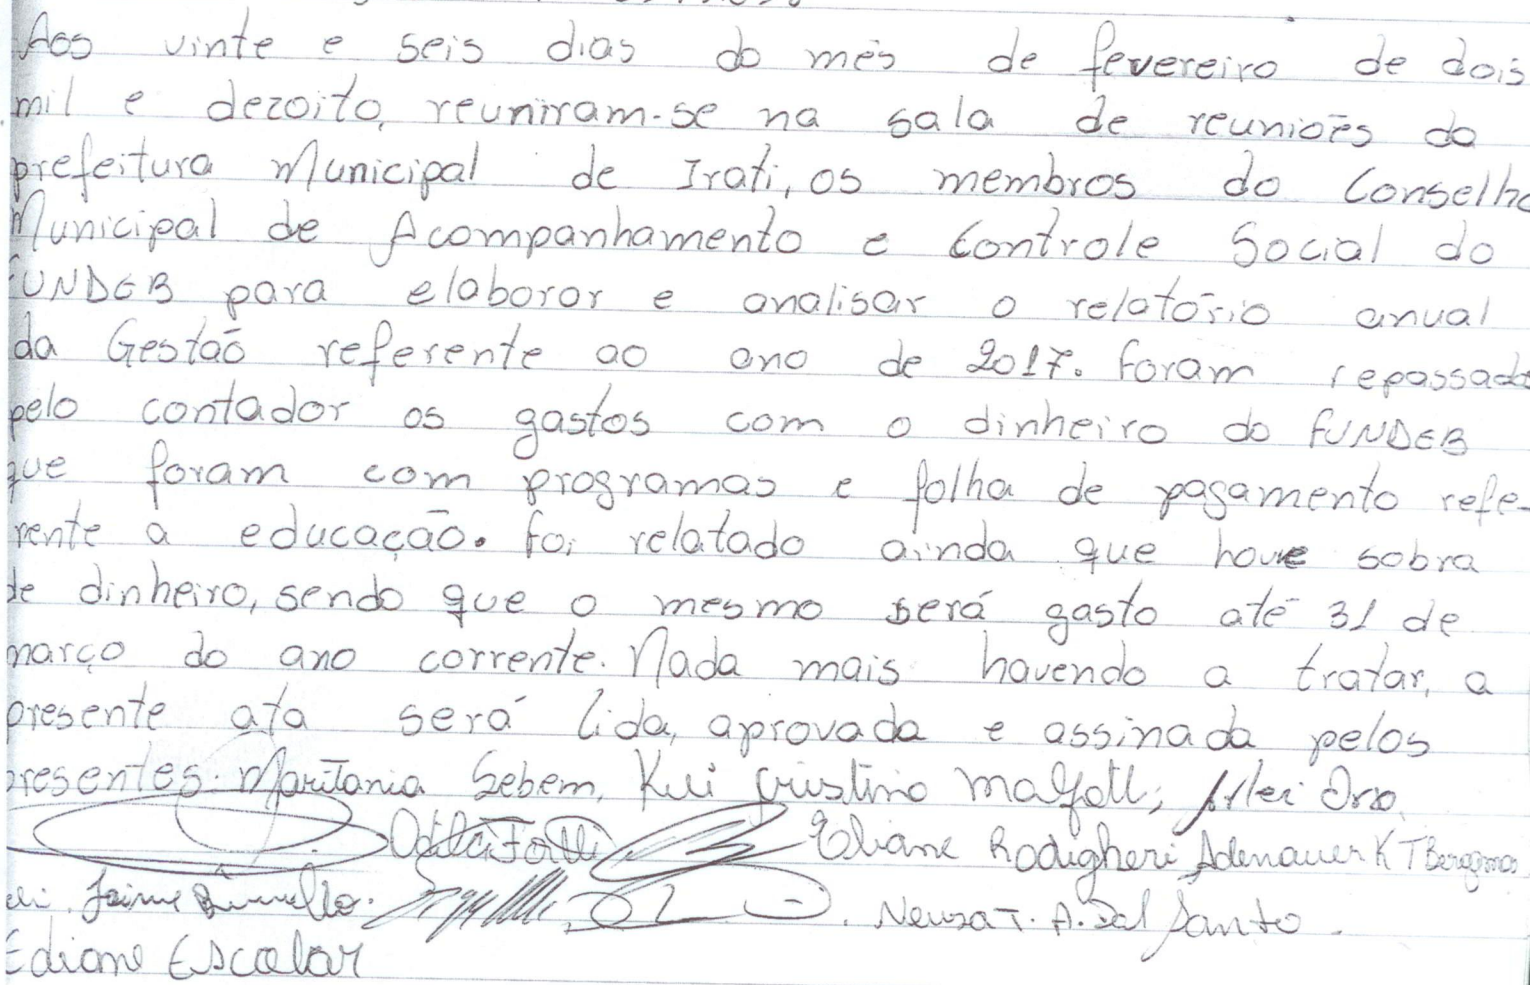 Aos vinte e seis dias do mês de fevereiro de dois
mil e dezoito, reuniram-se na sala de reuniões da
prefeitura Municipal de Irati, os membros do Conselho
Municipal de Acompanhamento e Controle Social do
FUNDEB para elaborar e analisar o relatório anual
da Gestão referente ao ano de 2017. Foram repassado
pelo contador os gastos com o dinheiro do FUNDEB
que foram com programas e folha de pagamento refe-
rente a educação. Foi relatado ainda que houve sobra
de dinheiro, sendo que o mesmo será gasto até 31 de
março do ano corrente. Nada mais havendo a tratar, a
presente ata será lida, aprovada e assinada pelos
presentes. Maritania Sebem, Cristina
Eliane Rodigheri Adenauer K T
Jaime Neusa T. A. Dal Santo.
Ediane Escalar